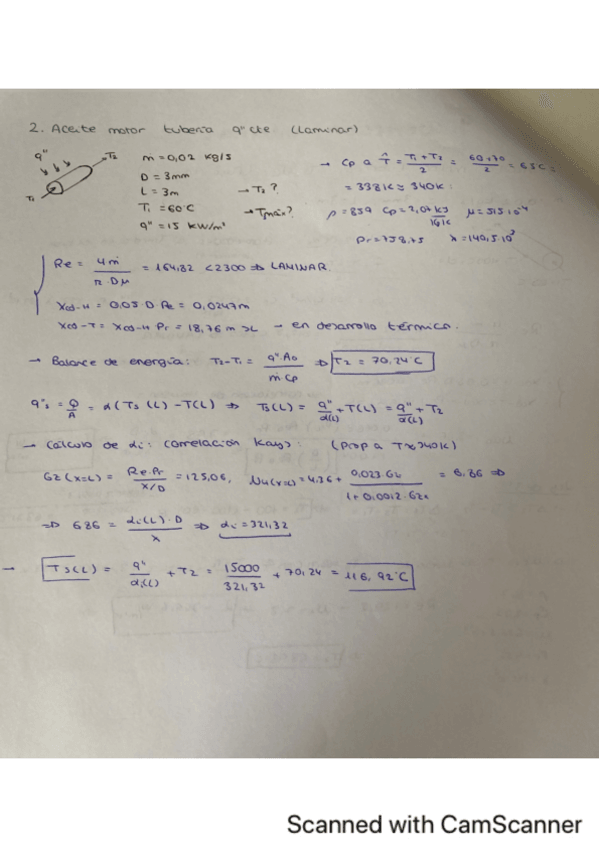 2. Aceite motor tubería q" cte (laminar)
q"
T2
T1
m = 0,02 kg/s
D = 3mm
L = 3m
T1 = 60°C
q" = 15 kW/m²
→ T2?
→ Tmáx?
→ Cp a T̂ = (T1 + T2)/2 = (60+70)/2 = 65°C =
= 338K ≈ 340K
ρ = 859 Cp = 2,07 kJ/kgK μ = 515·10⁻⁴
Pr = 758,75 λ = 140,5·10³
Re = 4ṁ/(π·Dμ) = 164,82 < 2300 ⇒ LAMINAR.
Xcd-H = 0,05·D·Re = 0,0247m
Xcd-T = Xcd-H Pr = 18,76 m > L → en desarrollo térmico.
→ Balance de energía: T2-T1 = q"A0/(ṁ Cp) ⇒ T2 = 70,24°C
q"s = Q/A = α(Ts(L) - T(L)) ⇒ Ts(L) = q"/α(L) + T(L) = q"/α(L) + T2
→ Cálculo de αi: correlación Kays: (Prop a T≈340K)
Gz(x=L) = Re·Pr/(x/D) = 125,06, Nu(x=L) = 4,36 + 0,023·Gz/(1+0,0012·Gz) = 6,86 ⇒
⇒ 6,86 = αi(L)·D/λ ⇒ αi = 321,32
→ Ts(L) = q"/αi(L) + T2 = 15000/321,32 + 70,24 = 116,92°C
Scanned with CamScanner